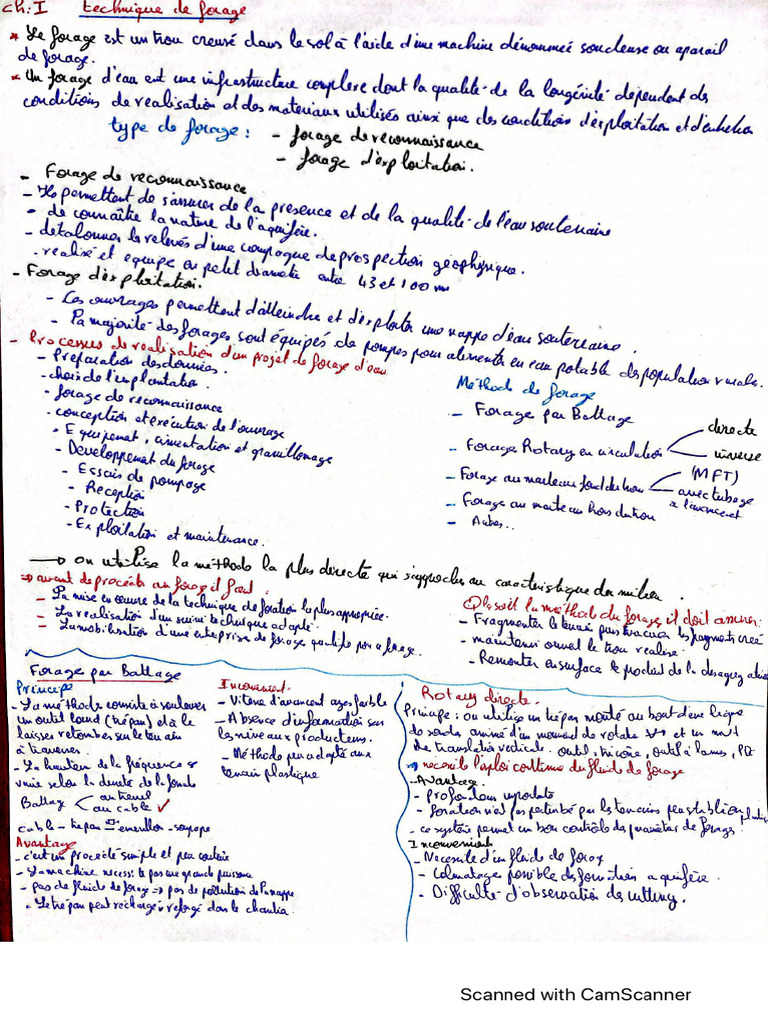 Ch: I technique de forage
* Le forage est un trou creusé dans le sol à l'aide d'une machine dénommeé sondeuse ou apareil
de forage.
* Un forage d'eau est une infrastructure complexe dont la qualité de la longénité dependent des
conditions de realisation et des materiaux utilisés ainsi que des conditions d'exploitation et d'entretien
type de forage : - forage de reconnaissance
- forage d'exploitation.
- Forage de reconnaissance
- Ils permettent de s'assurer de la presence et de la qualité de l'eau souterraine
- de connaître la nature de l'aquifère.
- d'etalonner les relevés d'une compagne de prospection geophysique.
- realisé et equipé en petit diametre entre 43 et 100 mm
- Forage d'exploitation.
- Ces ouvrages permettent d'atteindre et d'exploiter une nappe d'eau souterraine.
- La majorité des forages sont équipés de pompes pour alimenter en eau potable des populations rurales.
- Processus de realisation d'un projet de forage d'eau
- Préparation des données.
- choix de l'implantation.
- forage de reconnaissance
- conception et exécution de l'ouvrage
- Equipement, cimentation et gravillonnage
- Developpement du forage
- Essais de pompage
- Reception
- Protection
- Exploitation et maintenance.
Méthode de forage
- Forage par Battage
- Forage Rotary en circulation directe
inverse
- Forage au marteau fond du trou (MFT)
avec tubage
à l'avancement
- Forage au marteau hors du trou
- Autres...
→ on utilise la méthode la plus directe qui s'approche au caracteristique du milieu.
⇒ avant de proceder au forage il faut :
- La mise en œuvre de la technique de foration la plus appropriée.
- La realisation d'un suivi technique adapté.
- La mobilisation d'une entreprise de forage qualifié pour le forage.
Qlq soit la méthode du forage, il doit assurer:
- Fragmenter le terrain puis evacuer les fragments creé
- maintenir ouvert le trou realisé.
- Remonter en surface le produit de la
Forage par Battage
Principe
- La méthode consiste à soulever
un outil lourd (trépan) et à le
laisser retomber sur le terrain
à traverser.
- La hauteur de la fréquence
varie selon la dureté de la
Battage au
au cable ✓
cable - trépan -
Avantage
- c'est un procédé simple et peu couteux
- La machine necessite pas une grande puissance
- pas de fluide de forage ⇒ pas de pollution de la nappe
- Le trépan peut rechargé reforgé dans le chantier.
Inconvenient.
- Vitesse d'avancement assez faible
- Absence d'information sur
les niveaux producteurs.
- Méthode peu adapté aux
terrain plastique
Rotary directe.
Principe : on utilise un trépan monté au bout d'une ligne
de sonde, animé d'un mouvement de rotation et un mvt
de translation verticale. outil, tricone, outil à lames,
→ necessite l'emploi continue du fluide de forage
- Avantage
- profondeur importante
- foration n'est pas perturbé par les terrains peu stable
- ce système permet un bon contrôle des paramètres de forage.
Inconvenient
- Necessite d'un fluide de forage
- Colmatage possible des formations aquifère.
- Difficulté d'observation des cutting.
Scanned with CamScanner